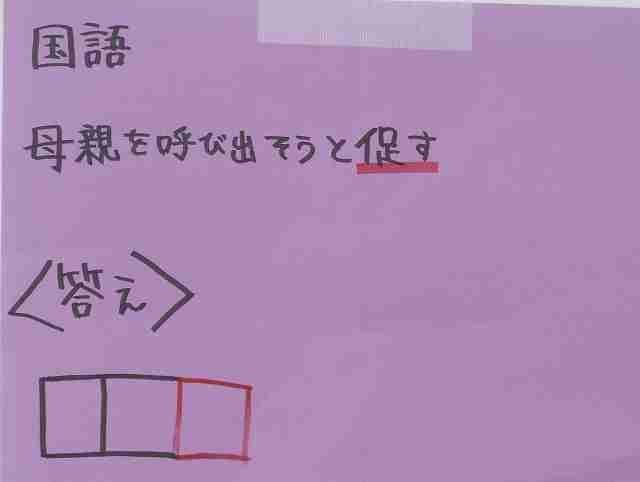 国語
母親を呼び出そうと促す
〈答え〉